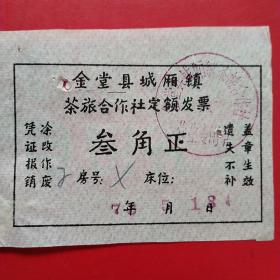 金堂县城厢镇
茶旅合作社定额发票
叁角正
凭证报销
涂改作废
遗失不补
盖章生效
房号: 床位:
年 月 日